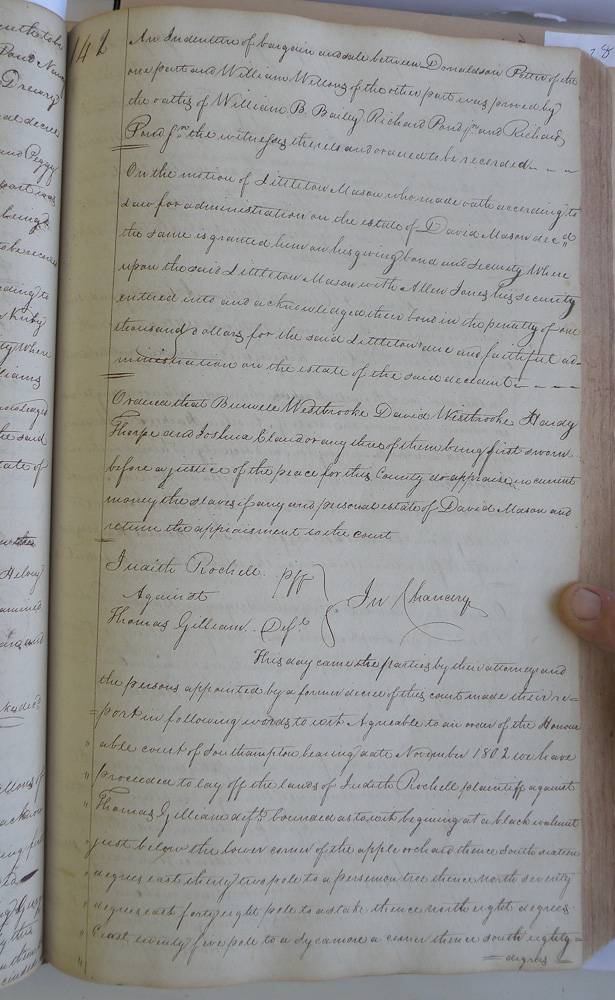 142
An Indenture of bargain and sale between Donaldson Potter of the
one part and William Wellons of the other part was proved by
the oaths of William B. Bailey Richard Pond Jnr and Richard
Pond the witnesses thereto and ordered to be recorded - - -
On the motion of Littleton Mason who made oath according to
Law for administration on the estate of David Mason decd
the same is granted him on his giving bond and security Where
upon the said Littleton Mason with Allen Jones his security
entered into and acknowledged their bond in the penalty of one
thousand dollars for the said Littletons due and faithful ad-
ministration on the estate of the said decedent - - - -
Ordered that Burwell Westbrooke David Westbrooke Hardy
Tharpe and Joshua Claud or any three of them being first sworn
before a justice of the peace for this County do appraise in current
money the slaves if any and personal estate of David Mason and
return the appraisment to the court
Judith Rochell plff
Against
In Chancery
Thomas Gilliam Deft
This day came the parties by their attorneys and
the persons appointed by a former decree of this court made their re=
=port in following words to wit Agreable to an order of the Honour
" able court of Southampton bearing date November 1802 we have
" proceeded to lay off the lands of Judith Rochell plaintiff against
" Thomas Gilliam deft bounded as towit begining at a black walnut
" just below the lower corner of the apple orchard thence south sixteen
" degrees east thirty two pole to a persemon tree thence north seventy
" degrees east forty eight pole to a stake thence north eight degrees
" east seventy five pole to a sycamore a corner thence south eighty =
= degrees